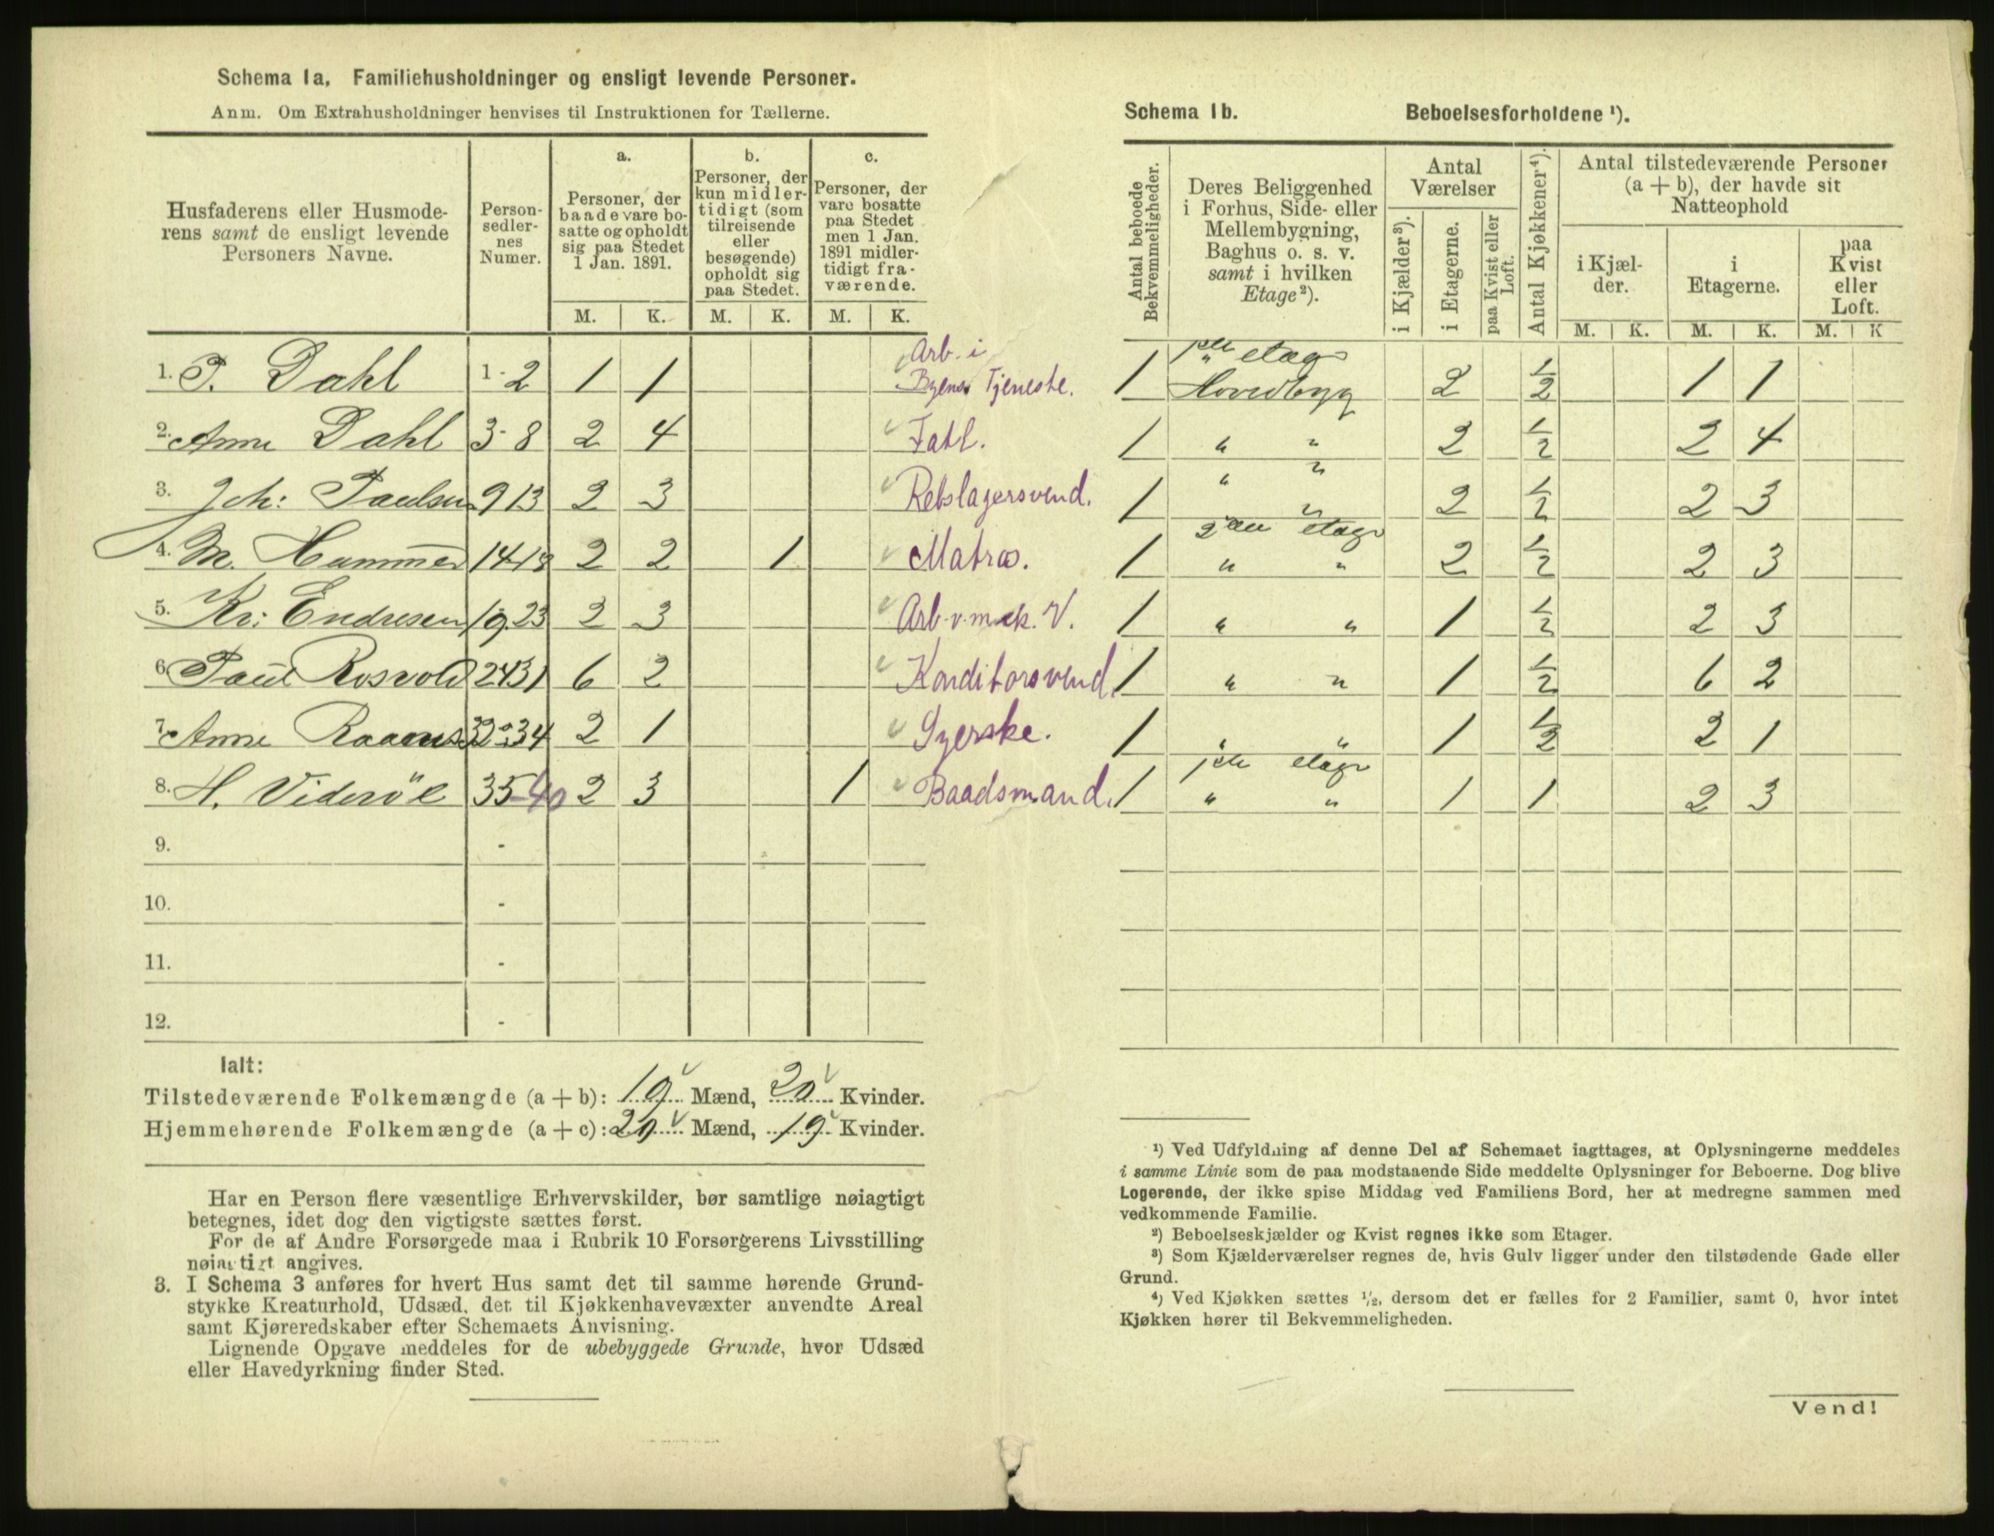 Schema 1a, Familiehusholdninger og ensligt levende Personer.
Anm. Om Extrahusholdninger henvises til Instruktionen for Tællerne.
Husfaderens eller Husmode-
rens samt de ensligt levende
Personers Navne.
Person-
sedler-
nes
Numer.
a.
Personer, der
baade vare bo-
satte og opholdt
sig paa Stedet
1 Jan. 1891.
b.
Personer, der
kun midler-
tidigt (som
tilreisende
eller
besøgende)
opholdt sig
paa Stedet.
c.
Personer, der
vare bosatte
paa Stedet
men 1 Jan.
1891 midler-
tidigt fra-
værende.
M. K. M. K. M. K.
1. P. Dahl 1-2 1 1 Arb. i
Byens Tjeneste.
2. Anne Dahl 3-8 2 4 Fatl.
3. Joh: Paulsen 9 13 2 3 Rebslagersvend.
4. M. Hammer 14-18 2 2 1 Matros.
5. Kr: Endresen 19.23 2 3 Arb. v. mek. V.
6. Paul Rosvold 24-31 6 2 Konditorsvend.
7. Anne 32-34 2 1 Syerske.
8. H. Videröe 35-40 2 3 1 Baadsmand.
9. -
10. -
11. -
12. -
Ialt:
Tilstedeværende Folkemængde (a + b): 19 Mænd, 20 Kvinder.
Hjemmehørende Folkemængde (a + c): 20 Mænd, 19 Kvinder.
Har en Person flere væsentlige Erhvervskilder, bør samtlige nøiagtigt
betegnes, idet dog den vigtigste sættes først.
For de af Andre Forsørgede maa i Rubrik 10 Forsørgerens Livsstilling
nøiagtigt angives.
3. I Schema 3 anføres for hvert Hus samt det til samme hørende Grund-
stykke Kreaturhold, Udsæd, det til Kjøkkenhavevæxter anvendte Areal
samt Kjøreredskaber efter Schemaets Anvisning.
Lignende Opgave meddeles for de ubebyggede Grunde, hvor Udsæd
eller Havedyrkning finder Sted.
Schema 1b. Beboelsesforholdene ¹).
Antal beboede
Bekvemmeligheder.
Deres Beliggenhed
i Forhus, Side- eller
Mellembygning,
Baghus o. s. v.
samt i hvilken
Etage²).
Antal
Værelser
i Kjælder³).
i Etagerne.
paa Kvist eller
Loft.
Antal Kjøkkener⁴).
Antal tilstedeværende Personer
(a + b), der havde sit
Natteophold
i Kjæl-
der.
i
Etagerne.
paa
Kvist
eller
Loft.
M. K. M. K. M. K
1 1ste etage
Hovedbyg 2 1/2 1 1
1 " " 2 1/2 2 4
" "
1 " 2 1/2 2 3
2den etage
1 " " 2 1/2 2 3
1 " " 1 1/2 2 3
1 " " 1 1/2 6 2
1 " " 1 1/2 2 1
1ste etage
1 " " 1 1 2 3
¹) Ved Udfyldning af denne Del af Schemaet iagttages, at Oplysningerne meddeles
i samme Linie som de paa modstaaende Side meddelte Oplysninger for Beboerne. Dog blive
Logerende, der ikke spise Middag ved Familiens Bord, her at medregne sammen med
vedkommende Familie.
²) Beboelseskjælder og Kvist regnes ikke som Etager.
³) Som Kjælderværelser regnes de, hvis Gulv ligger under den tilstødende Gade eller
Grund.
⁴) Ved Kjøkken sættes ¹/₂, dersom det er fælles for 2 Familier, samt 0, hvor intet
Kjøkken hører til Bekvemmeligheden.
Vend!